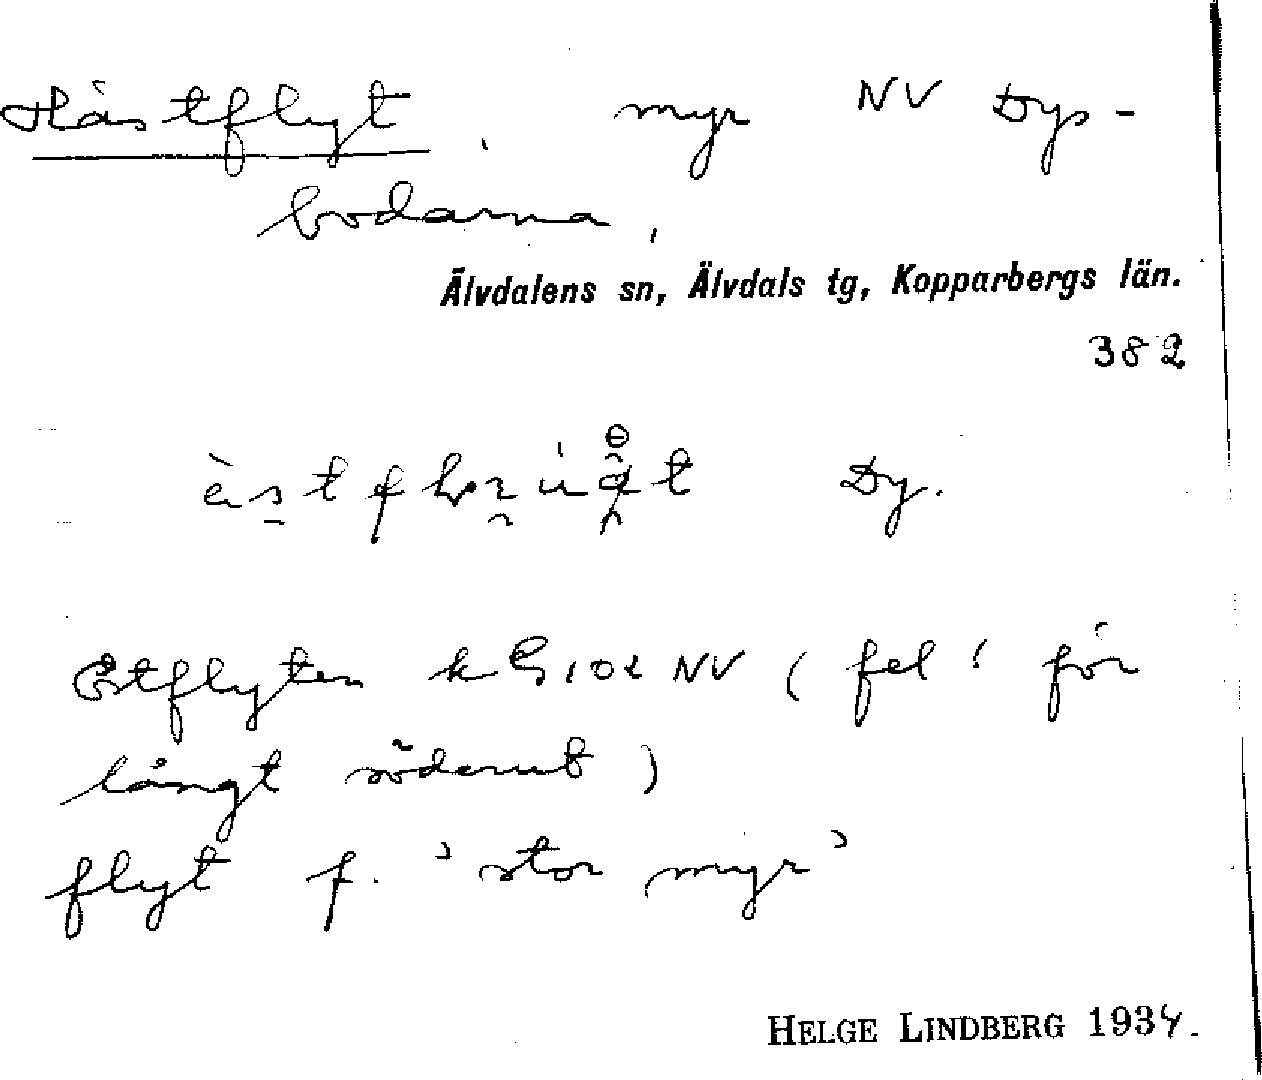 Hästflyt, myr NV Dys-
bodarna,
Älvdalens sn, Älvdals tg, Kopparbergs län.
382
Dy.
Östflyten k G 102 NV (fel! för
långt söderut)
flyt f. 'stor myr'
HELGE LINDBERG 1934.